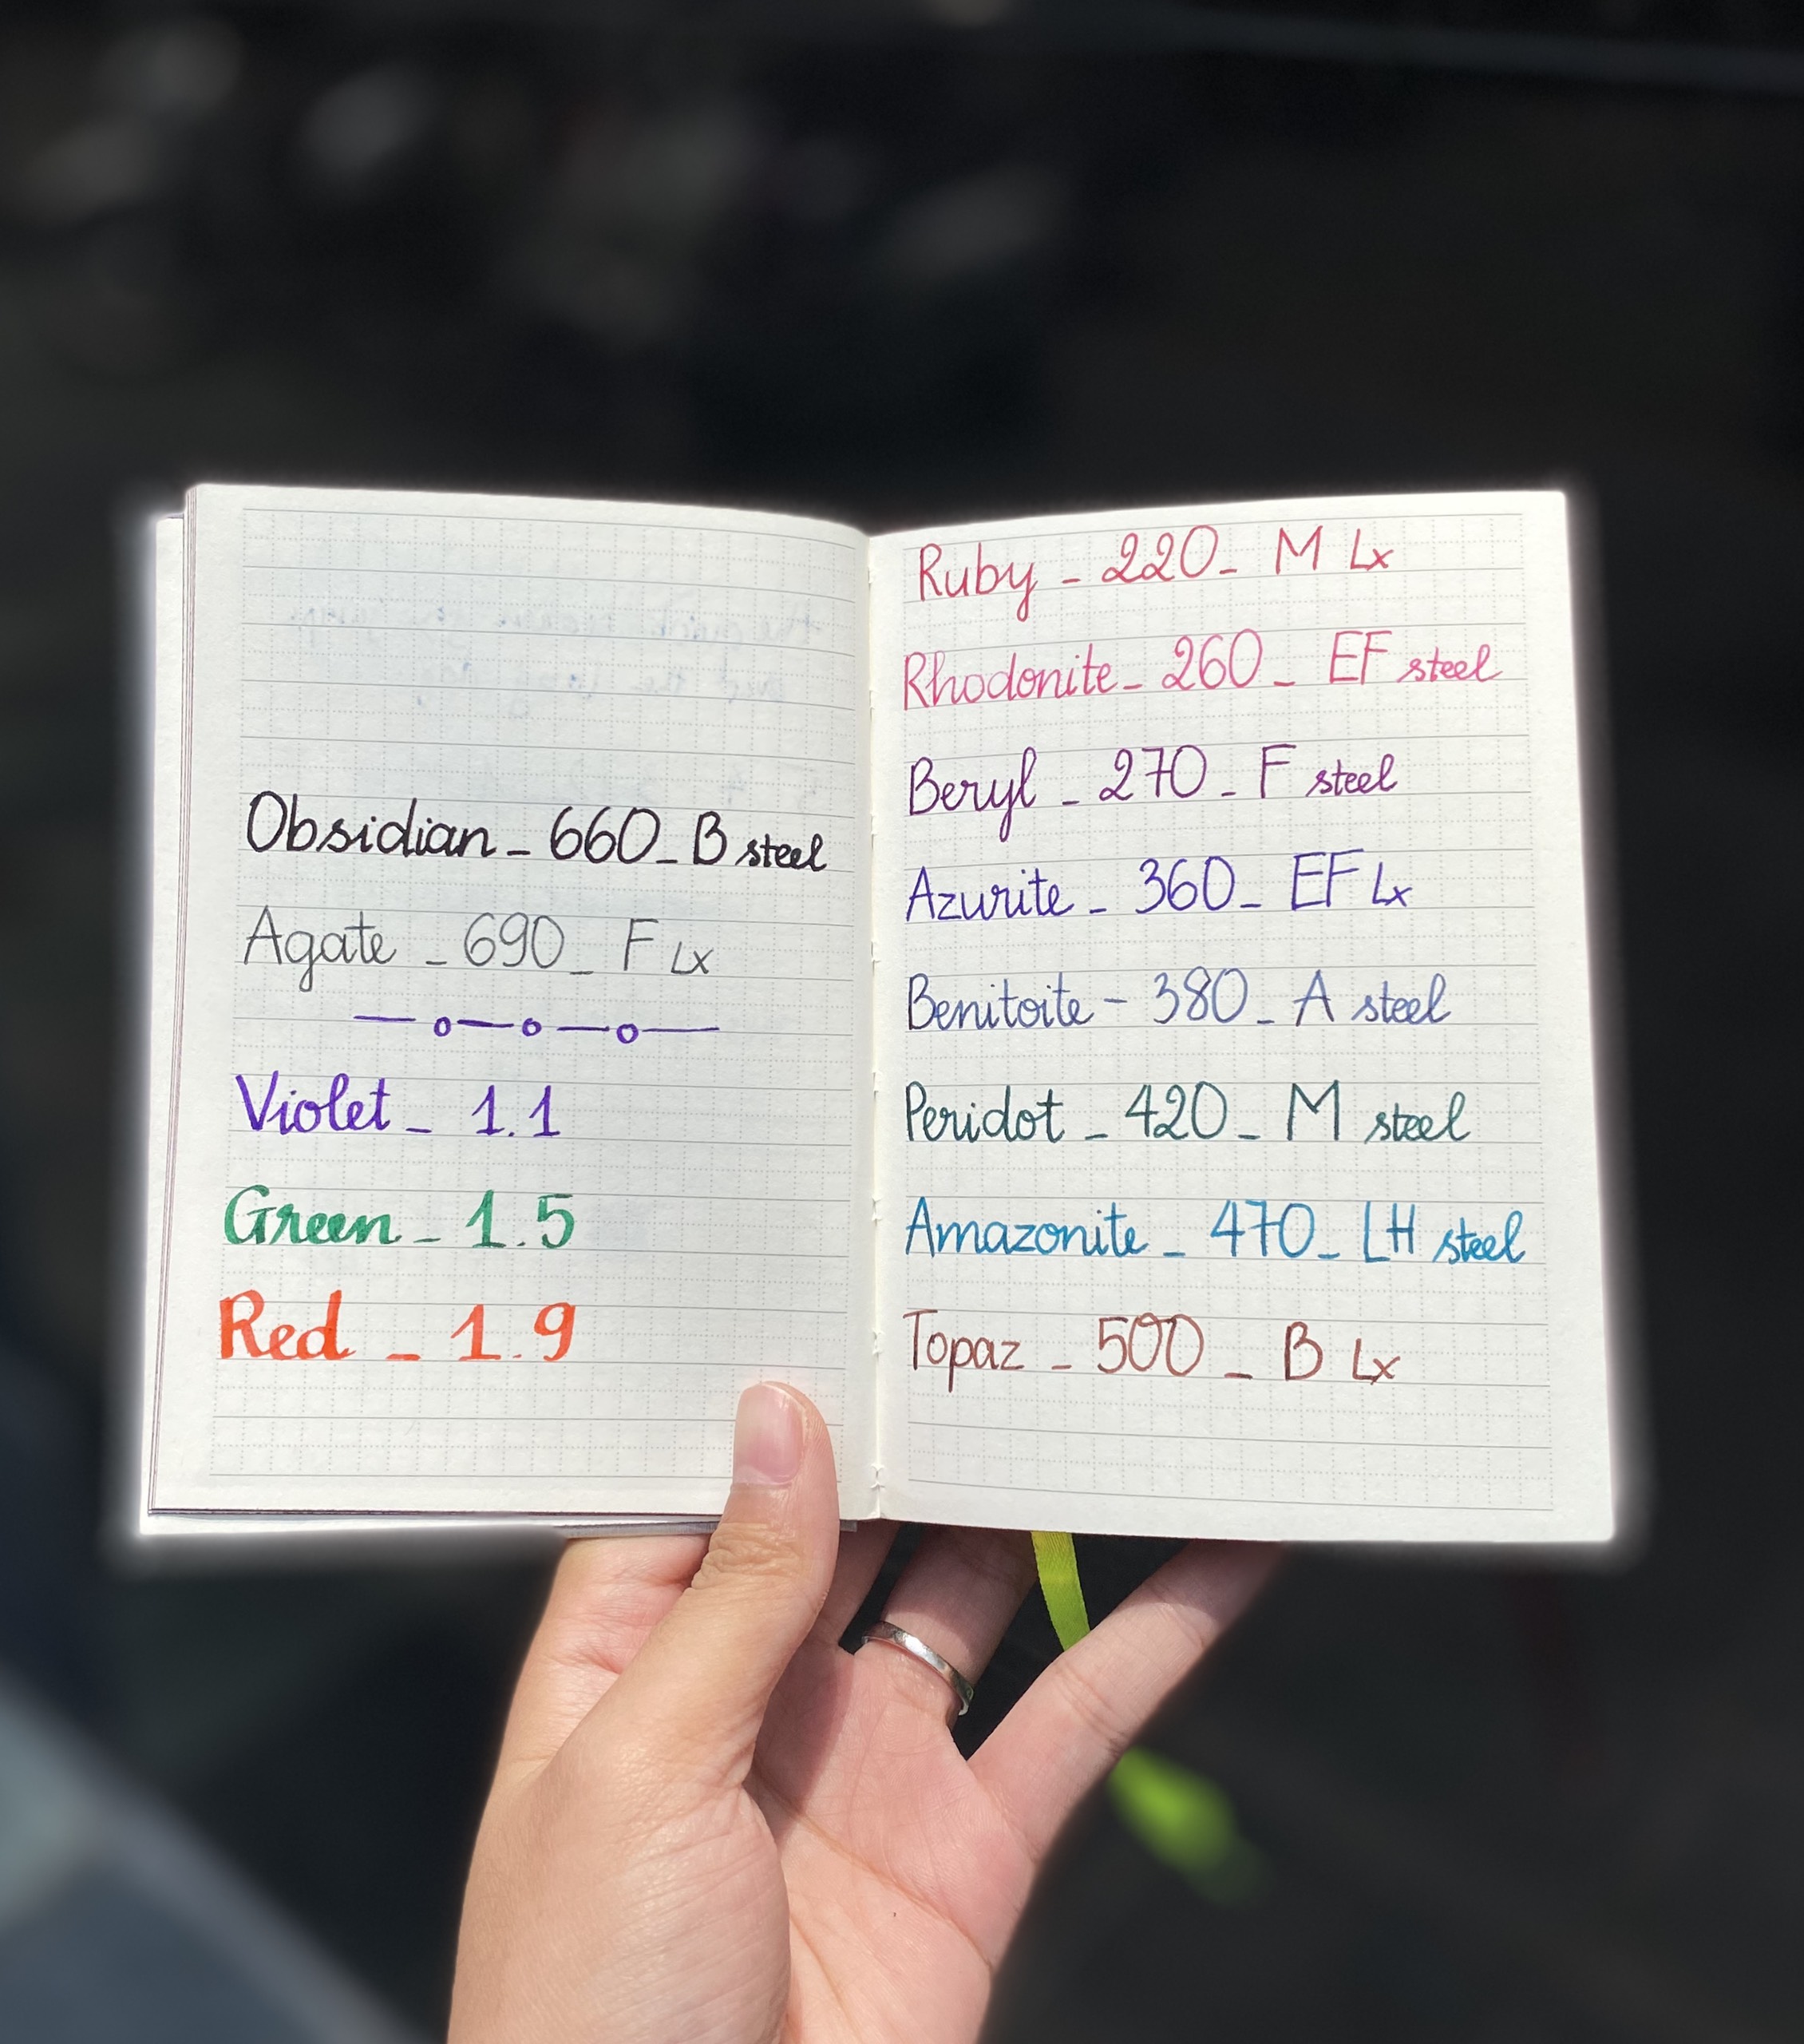 Obsidian - 660 - B steel
Agate - 690 - F Lx
Violet - 1.1
Green - 1.5
Red - 1.9
Ruby - 220 - M Lx
Rhodonite - 260 - EF steel
Beryl - 270 - F steel
Azurite - 360 - EF Lx
Benitoite - 380 - A steel
Peridot - 420 - M steel
Amazonite - 470 - LH steel
Topaz - 500 - B Lx